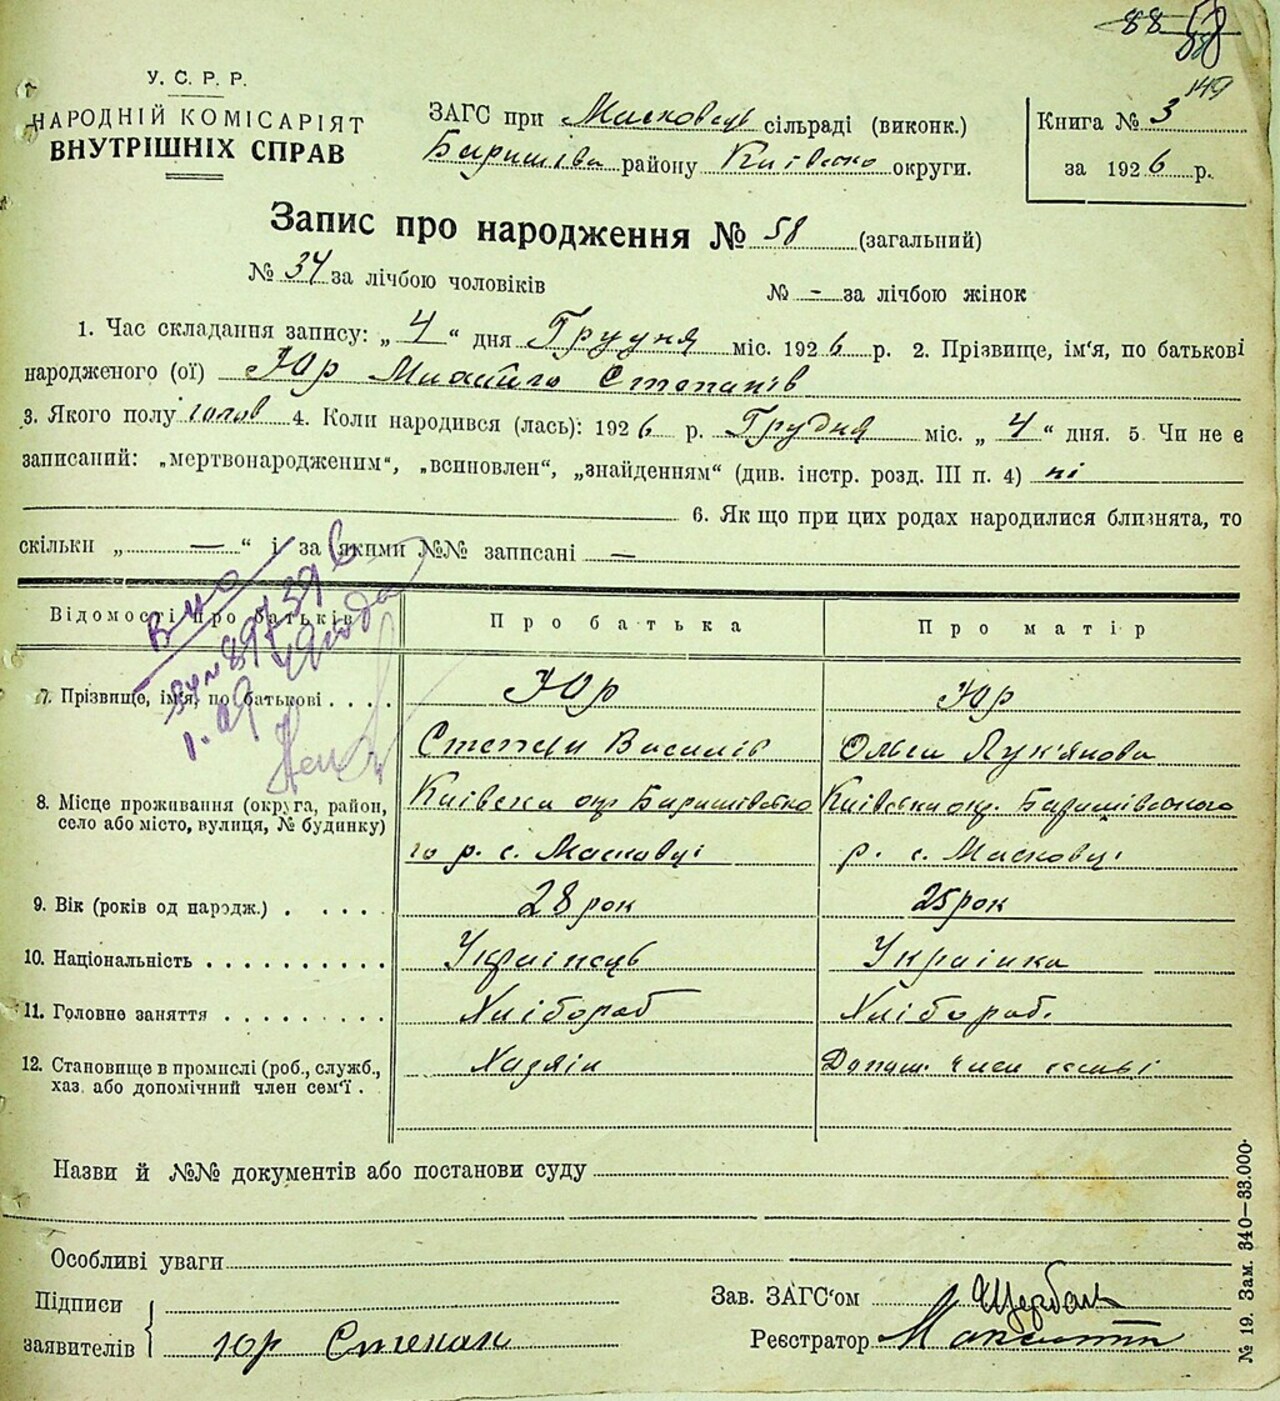 88 58
88
149
У. С. Р. Р.
НАРОДНІЙ КОМІСАРІЯТ
ВНУТРІШНІХ СПРАВ
ЗАГС при Масковець сільраді (виконк.)
Баришівс. району Київсько округи.
Книга № 3
за 1926 р.
Запис про народження № 58 (загальний)
№ 34 за лічбою чоловіків
№ - за лічбою жінок
1. Час складання запису: „ 4 “ дня Грудня міс. 1926 р. 2. Прізвище, ім‘я, по батькові
народженого (ої) Юр Степанів
3. Якого полу чолов 4. Коли народився (лась): 1926 р. Грудня міс. „ 4 “ дня. 5. Чи не є
записаний: „мертвонародженим“, „всиновлен“, „знайденням“ (див. інстр. розд. III п. 4) ні
6. Як що при цих родах народилися близнята, то
скільки „ — “ і за якими №№ записані —
Відомості про батьків
Про батька
Про матір
7. Прізвище, ім‘я, по батькові . . . .
Юр
Юр
Степан Василів
Ольга Лук'янова
8. Місце проживання (округа, район,
село або місто, вулиця, № будинку)
Київська окр. Баришівсько
Київська окр. Баришівського
го р. с. Масковці
р. с. Масковці
9. Вік (років од народж.) . . . . .
28 рок
25 рок
10. Національність . . . . . . . . . .
Українець
Українка
11. Головне заняття . . . . . . . . .
Хлібороб
Хлібороб.
12. Становище в промислі (роб., служб.,
хаз. або допомічний член сем‘ї .
Хазяїн
Допом. член семьї
Назви й №№ документів або постанови суду
Особливі уваги
Підписи
заявителів
Юр Степан
Зав. ЗАГС‘ом Щербак
Реєстратор
№ 19. Зам. 340—33.000.